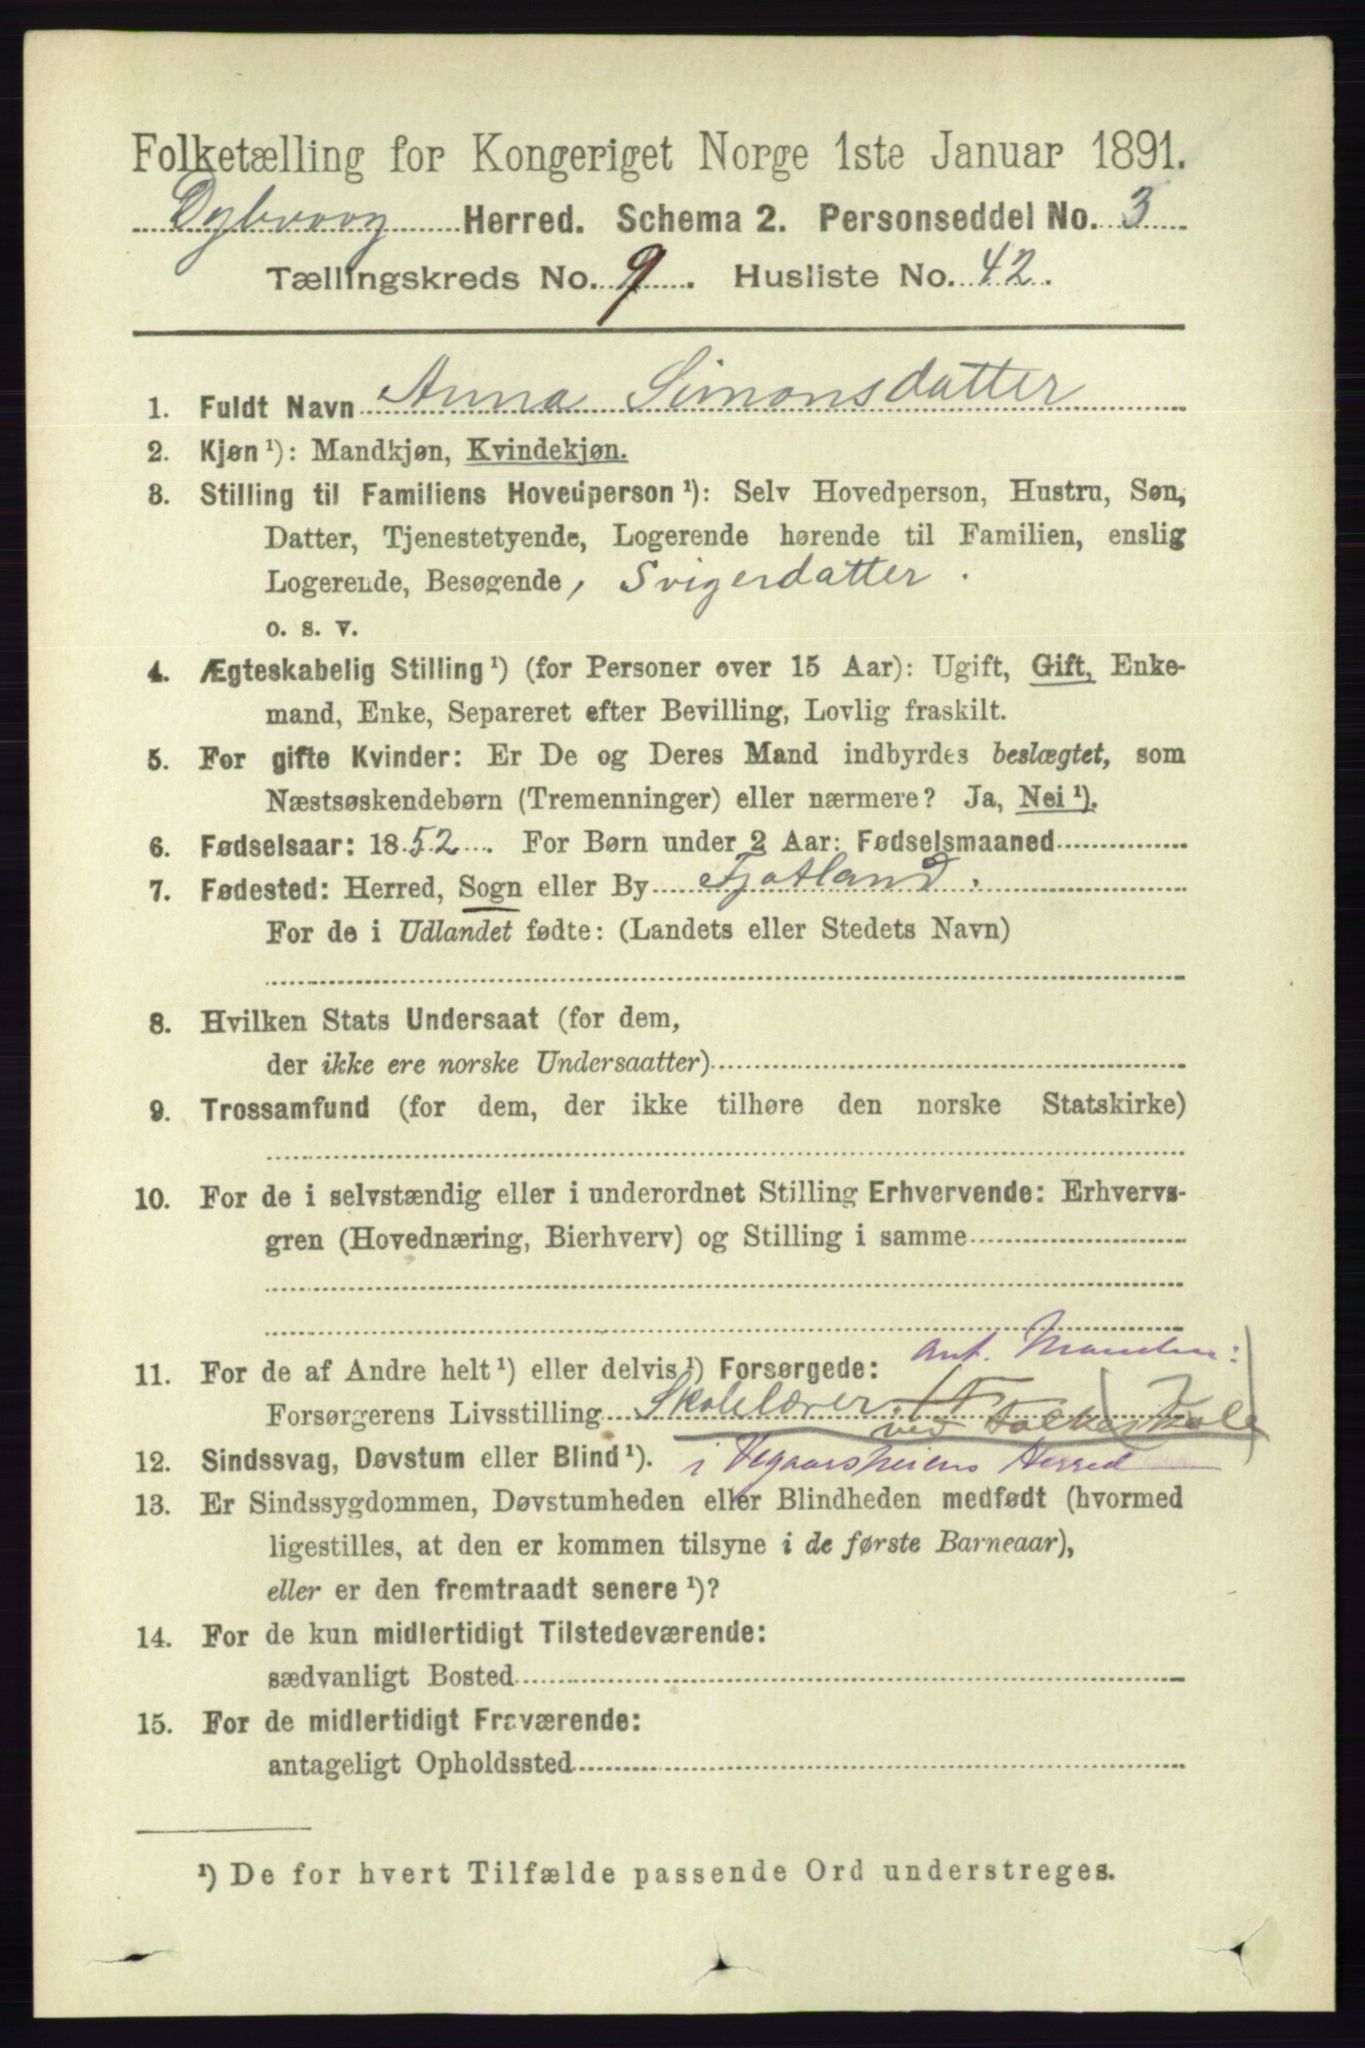 Folketælling for Kongeriget Norge 1ste Januar 1891.
Dybvaag Herred. Schema 2. Personseddel No. 3
Tællingskreds No. 9. Husliste No. 42.
1. Fuldt Navn Anna Simonsdatter
2. Kjøn ¹): Mandkjøn, Kvindekjøn.
3. Stilling til Familiens Hovedperson ¹): Selv Hovedperson, Hustru, Søn,
Datter, Tjenestetyende, Logerende hørende til Familien, enslig
Logerende, Besøgende, Svigerdatter.
o. s. v.
4. Ægteskabelig Stilling ¹) (for Personer over 15 Aar): Ugift, Gift, Enke-
mand, Enke, Separeret efter Bevilling, Lovlig fraskilt.
5. For gifte Kvinder: Er De og Deres Mand indbyrdes beslægtet, som
Næstsøskendebørn (Tremenninger) eller nærmere? Ja, Nei ¹).
6. Fødselsaar: 1852. For Børn under 2 Aar: Fødselsmaaned
7. Fødested: Herred, Sogn eller By Fjotland.
For de i Udlandet fødte: (Landets eller Stedets Navn)
8. Hvilken Stats Undersaat (for dem,
der ikke ere norske Undersaatter)
9. Trossamfund (for dem, der ikke tilhøre den norske Statskirke)
10. For de i selvstændig eller i underordnet Stilling Erhvervende: Erhvervs-
gren (Hovednæring, Bierhverv) og Stilling i samme
ant. Manden:
11. For de af Andre helt ¹) eller delvis ¹) Forsørgede:
Forsørgerens Livsstilling Skolelærer ved Folkeskole
12. Sindssvag, Døvstum eller Blind ¹). i Vegaarsheiens Herred
13. Er Sindssygdommen, Døvstumheden eller Blindheden medfødt (hvormed
ligestilles, at den er kommen tilsyne i de første Barneaar),
eller er den fremtraadt senere ¹)?
14. For de kun midlertidigt Tilstedeværende:
sædvanligt Bosted
15. For de midlertidigt Fraværende:
antageligt Opholdssted
¹) De for hvert Tilfælde passende Ord understreges.